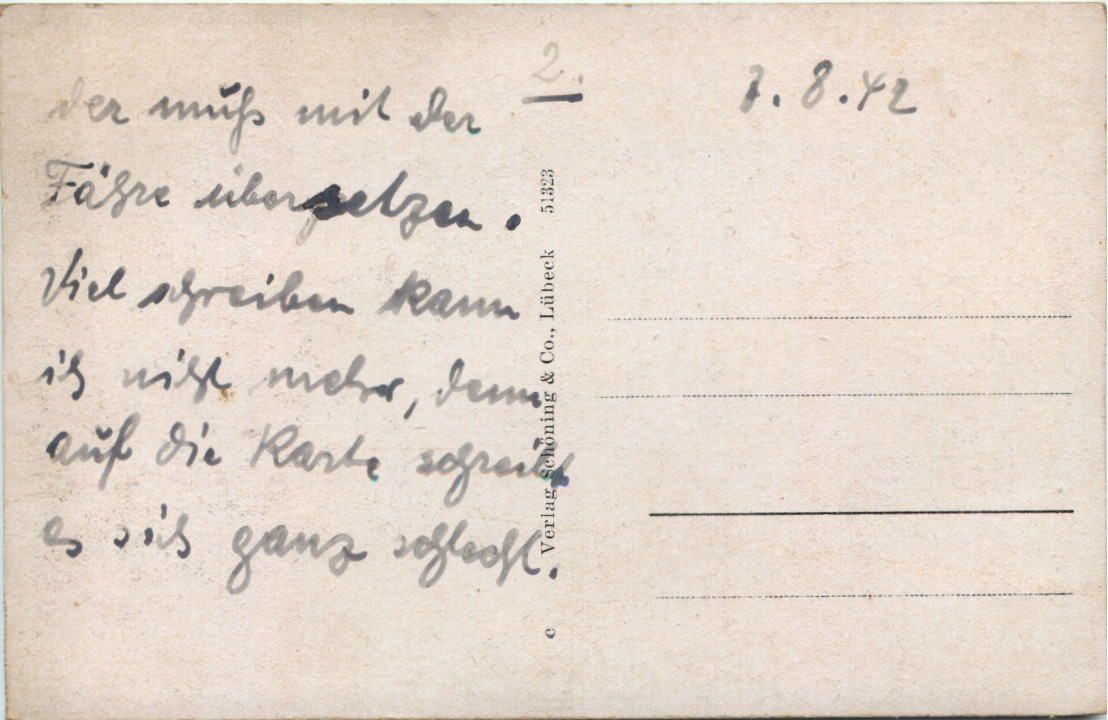 2.
der muß mit der
Fähre übersetzen.
Viel schreiben kann
ich nicht mehr, denn
auf die Karte schreibt
es sich ganz schlecht.
c Verlag Schöning & Co., Lübeck 51323
7.8.42